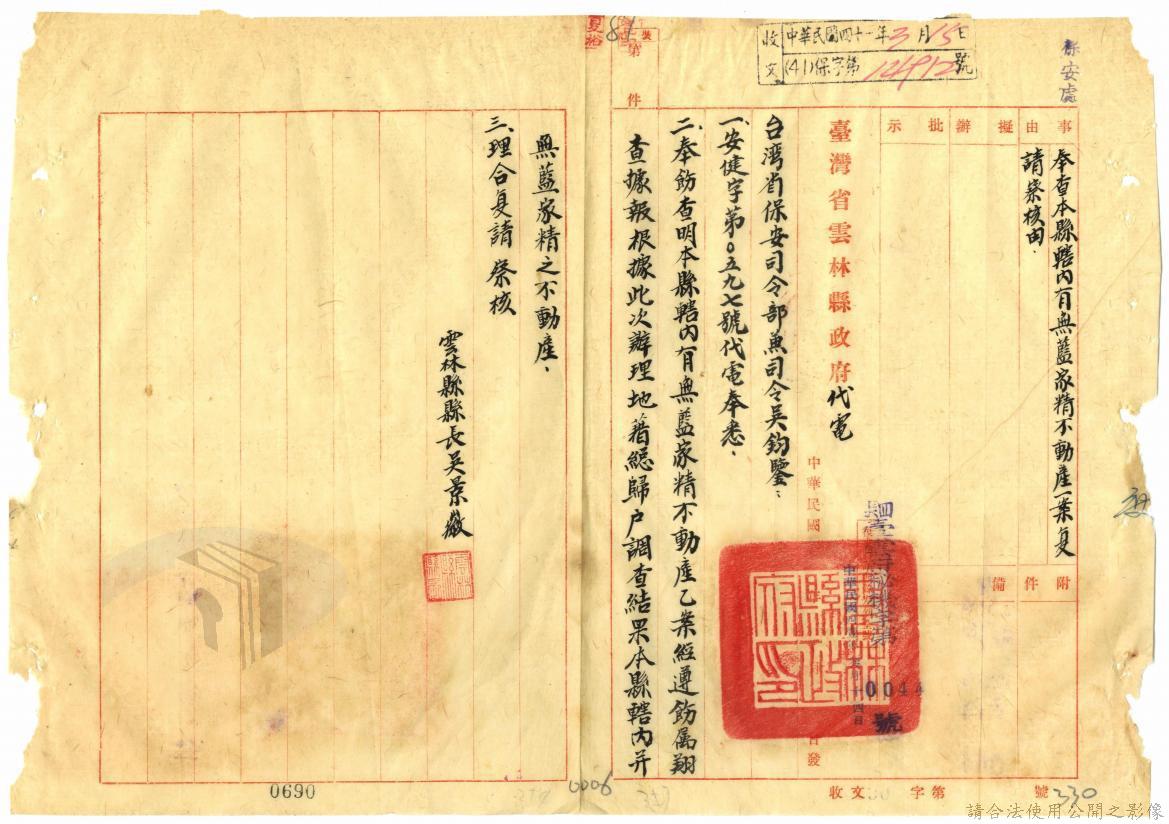 保安處
收文 中華民國四十一年3月15日
(41)保字第12912號
事由
擬辦
批示
奉查本縣轄內有無藍家精不動產一案复
請察核由、
附件
備
臺灣省雲林縣政府代電
中華民國
日發
0044
號
台湾省保安司令部兼司令吳鈞鑒：
一、安健字第0五九七號代電奉悉、
二、奉飭查明本縣轄內有無藍家精不動產乙案經遵飭属翔
查據報根據此次辦理地藉總歸户調查結果本縣轄內并
無藍家精之不動產、
三、理合复請 察核
雲林縣縣長吳景徽
裝
第
件
收文 字第 號
330
0006
0690
請合法使用公開之影像